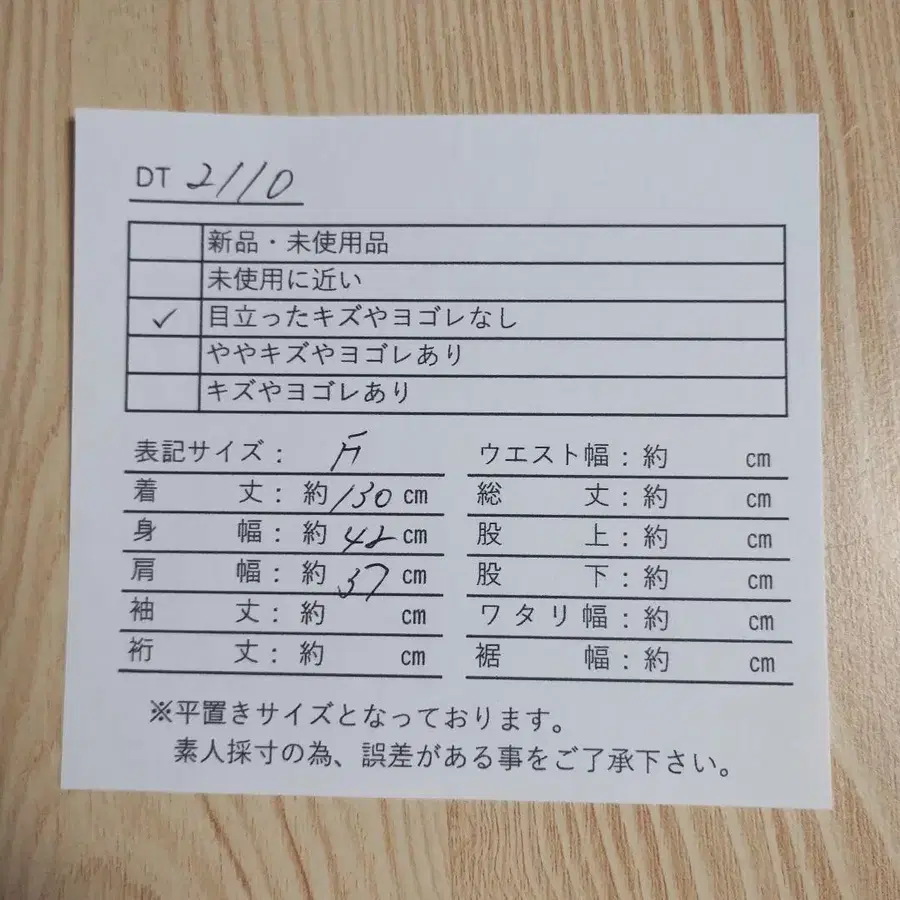 DT 2110
新品・未使用品
未使用に近い
✓ 目立ったキズやヨゴレなし
ややキズやヨゴレあり
キズやヨゴレあり
表記サイズ： F
着丈：約130cm
身幅：約42cm
肩幅：約37cm
袖丈：約 cm
裄丈：約 cm
ウエスト幅：約 cm
総丈：約 cm
股上：約 cm
股下：約 cm
ワタリ幅：約 cm
裾幅：約 cm
※平置きサイズとなっております。
素人採寸の為、誤差がある事をご了承下さい。